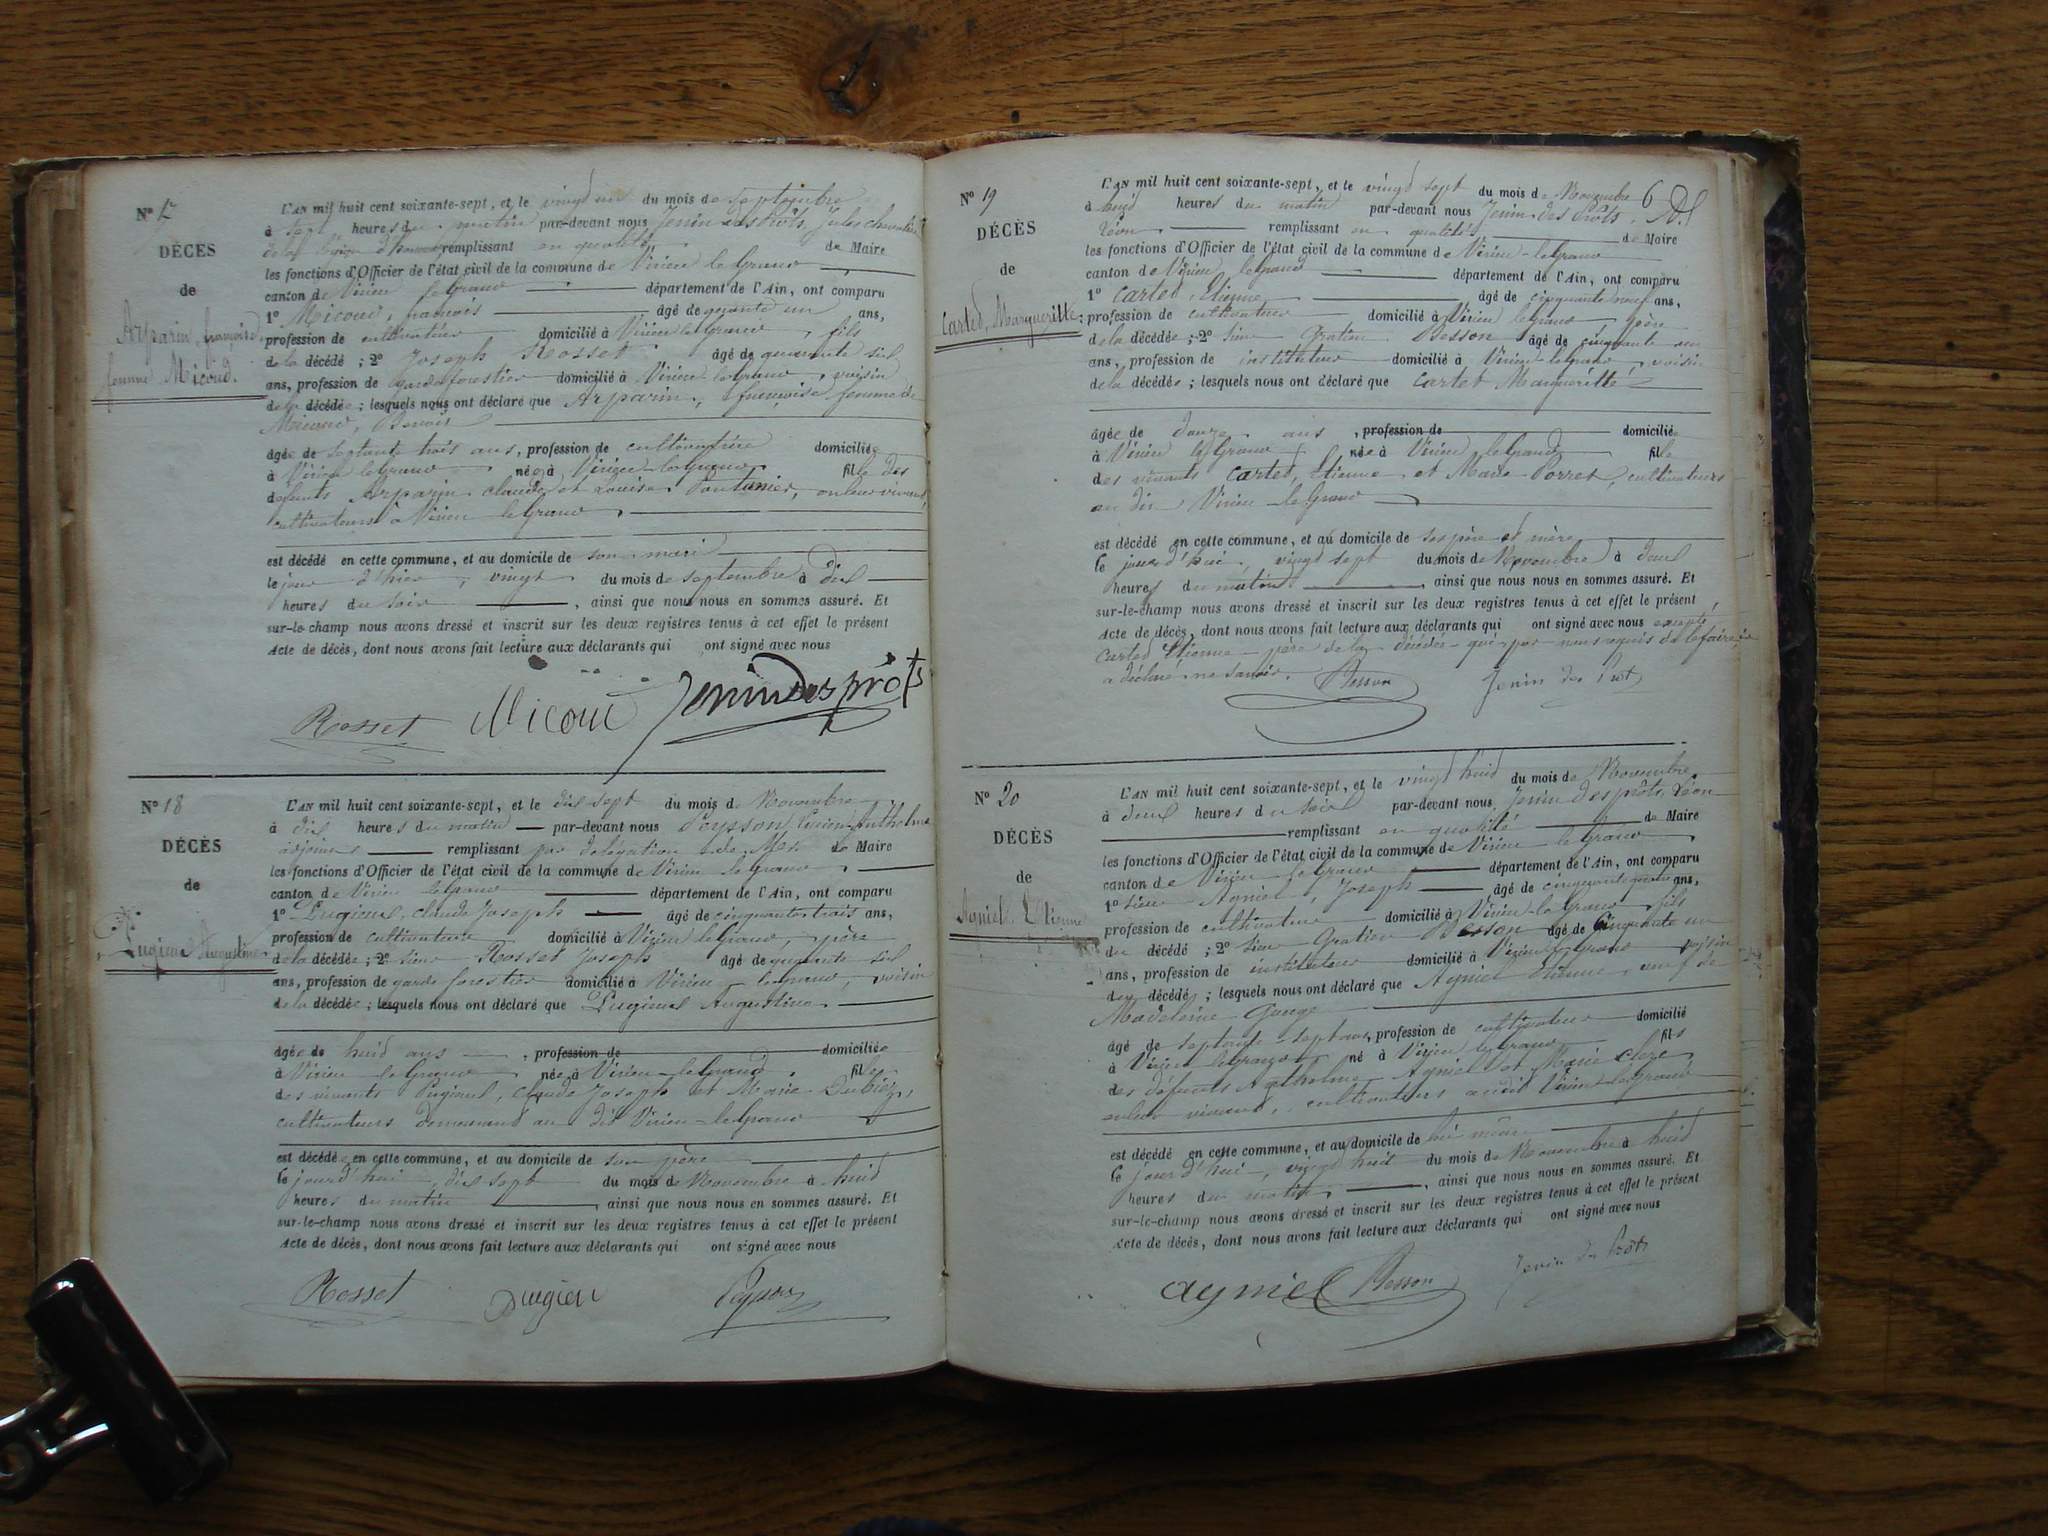 N° 17
DÉCÈS
de
Arparin, françoise
femme Micoud.
L'AN mil huit cent soixante-sept, et le vingt un du mois de Septembre
à sept heures du matin par-devant nous Jenin Desprôts, Jules chevalier
de la légion d'honneur remplissant en qualité de Maire
les fonctions d'Officier de l'état civil de la commune de Virieu le Grand
canton de Virieu le Grand département de l'Ain, ont comparu
1° Micoud, âgé de un ans,
profession de cultivateur domicilié à Virieu le Grand, fils
de la décédé ; 2° Joseph Rosset âgé de quarante six
ans, profession de garde forestier domicilié à Virieu le Grand, voisin
de la décédée ; lesquels nous ont déclaré que Arparin, françoise femme de
Micoud, Benoit
âgée de septante trois ans, profession de cultivatrice domiciliée
à Virieu le Grand née à Virieu le Grand fille des
défunts Arparin claude et Louise, en leur vivant
cultivateurs à Virieu le Grand.
est décédé en cette commune, et au domicile de son mari
le jour d'hier, vingt du mois de septembre à dix
heures du soir, ainsi que nous nous en sommes assuré. Et
sur-le-champ nous avons dressé et inscrit sur les deux registres tenus à cet effet le présent
Acte de décès, dont nous avons fait lecture aux déclarants qui ont signé avec nous
Rosset Micoud Jenin Desprôts
N° 18
DÉCÈS
de
Pugieux Augustine
L'AN mil huit cent soixante-sept, et le dix sept du mois de Novembre
à dix heures du matin par-devant nous Peysson, Anthelme
adjoint remplissant par délégation de Mr. le Maire
les fonctions d'Officier de l'état civil de la commune de Virieu le grand
canton de Virieu le Grand département de l'Ain, ont comparu
1° Pugieux, claude Joseph âgé de cinquante trois ans,
profession de cultivateur domicilié à Virieu le Grand, père
de la décédée ; 2° sieur Rosset Joseph âgé de quarante six
ans, profession de garde forestier domicilié à Virieu le grand, voisin
de la décédée ; lesquels nous ont déclaré que Pugieux Augustine
âgée de huit ans, profession de domiciliée
à Virieu le Grand née à Virieu-le Grand, fille
des vivants Pugieux, claude Joseph et Marie Dubiez,
cultivateurs demeurant au dit Virieu-le grand
est décédée en cette commune, et au domicile de son père
le jourd'hui, dix sept du mois de Novembre à huit
heures du matin, ainsi que nous nous en sommes assuré. Et
sur-le-champ nous avons dressé et inscrit sur les deux registres tenus à cet effet le présent
Acte de décès, dont nous avons fait lecture aux déclarants qui ont signé avec nous
Rosset Pugieu Peysson
6
N° 19
DÉCÈS
de
Cartet, Margueritte
L'AN mil huit cent soixante-sept, et le vingt sept du mois de Novembre
à huit heures du matin par-devant nous Jenin des Prôts,
Léon remplissant en qualité de Maire
les fonctions d'Officier de l'état civil de la commune de Virieu-le grand
canton de Virieu le grand département de l'Ain, ont comparu
1° Cartet, Etienne âgé de cinquante neuf ans,
profession de cultivateur domicilié à Virieu le grand père
de la décédée ; 2° Sieur Gratien Besson âgé de cinquante un
ans, profession de instituteur domicilié à Virieu le grand, voisin
de la décédée ; lesquels nous ont déclaré que Cartet Margueritte
âgée de douze ans, profession de domiciliée
à Virieu le Grand, née à Virieu le Grand fille
des vivants Cartet, Etienne et Marie Porret, cultivateurs
au dit Virieu-le Grand
est décédé en cette commune, et au domicile de ses père et mère
le jourd'hui, vingt sept du mois de Novembre à deux
heures du matin, ainsi que nous nous en sommes assuré. Et
sur-le-champ nous avons dressé et inscrit sur les deux registres tenus à cet effet le présent
Acte de décès, dont nous avons fait lecture aux déclarants qui ont signé avec nous excepté
Cartet Etienne père de la décédée qui par nous requis de le faire
a déclaré ne savoir. Besson Jenin des Prôts
N° 20
DÉCÈS
de
Agniel Etienne
L'AN mil huit cent soixante-sept, et le vingt huit du mois de Novembre
à deux heures du soir par-devant nous Jenin des prôts, Léon
remplissant en qualité de Maire
les fonctions d'Officier de l'état civil de la commune de Virieu le Grand
canton de Virieu le Grand département de l'Ain, ont comparu
1° Sieur Agniel, Joseph âgé de cinquante quatre ans,
profession de cultivateur domicilié à Virieu-le Grand, fils
du décédé ; 2° Sieur Gratien Besson âgé de cinquante un
ans, profession de instituteur domicilié à Virieu le Grand voisin
du décédé ; lesquels nous ont déclaré que Agniel Etienne, veuf de
Madeleine
âgé de septante-sept ans, profession de cultivateur domicilié
à Virieu le Grand né à Virieu le Grand fils
des défunts Anthelme Agniel et Marie clerc
en leur vivant, cultivateurs audit Virieu-le grand
est décédé en cette commune, et au domicile de lui même
le jourd'hui, vingt huit du mois de Novembre à huit
heures du matin, ainsi que nous nous en sommes assuré. Et
sur-le-champ nous avons dressé et inscrit sur les deux registres tenus à cet effet le présent
Acte de décès, dont nous avons fait lecture aux déclarants qui ont signé avec nous
agniel Besson Jenin des Prôts